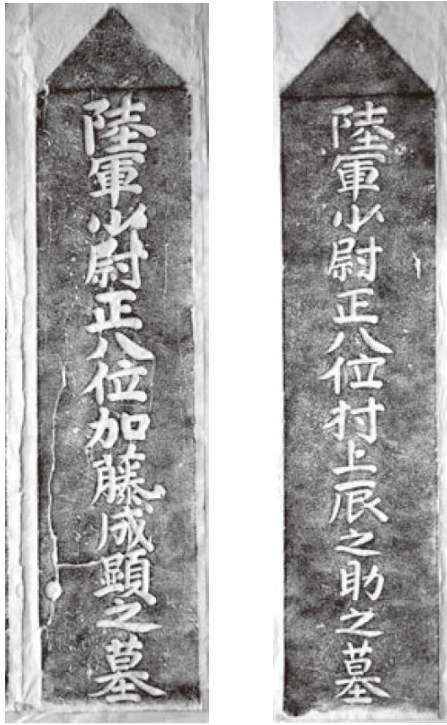 陸軍少尉正八位加藤成顕之墓
陸軍少尉正八位村上辰之助之墓